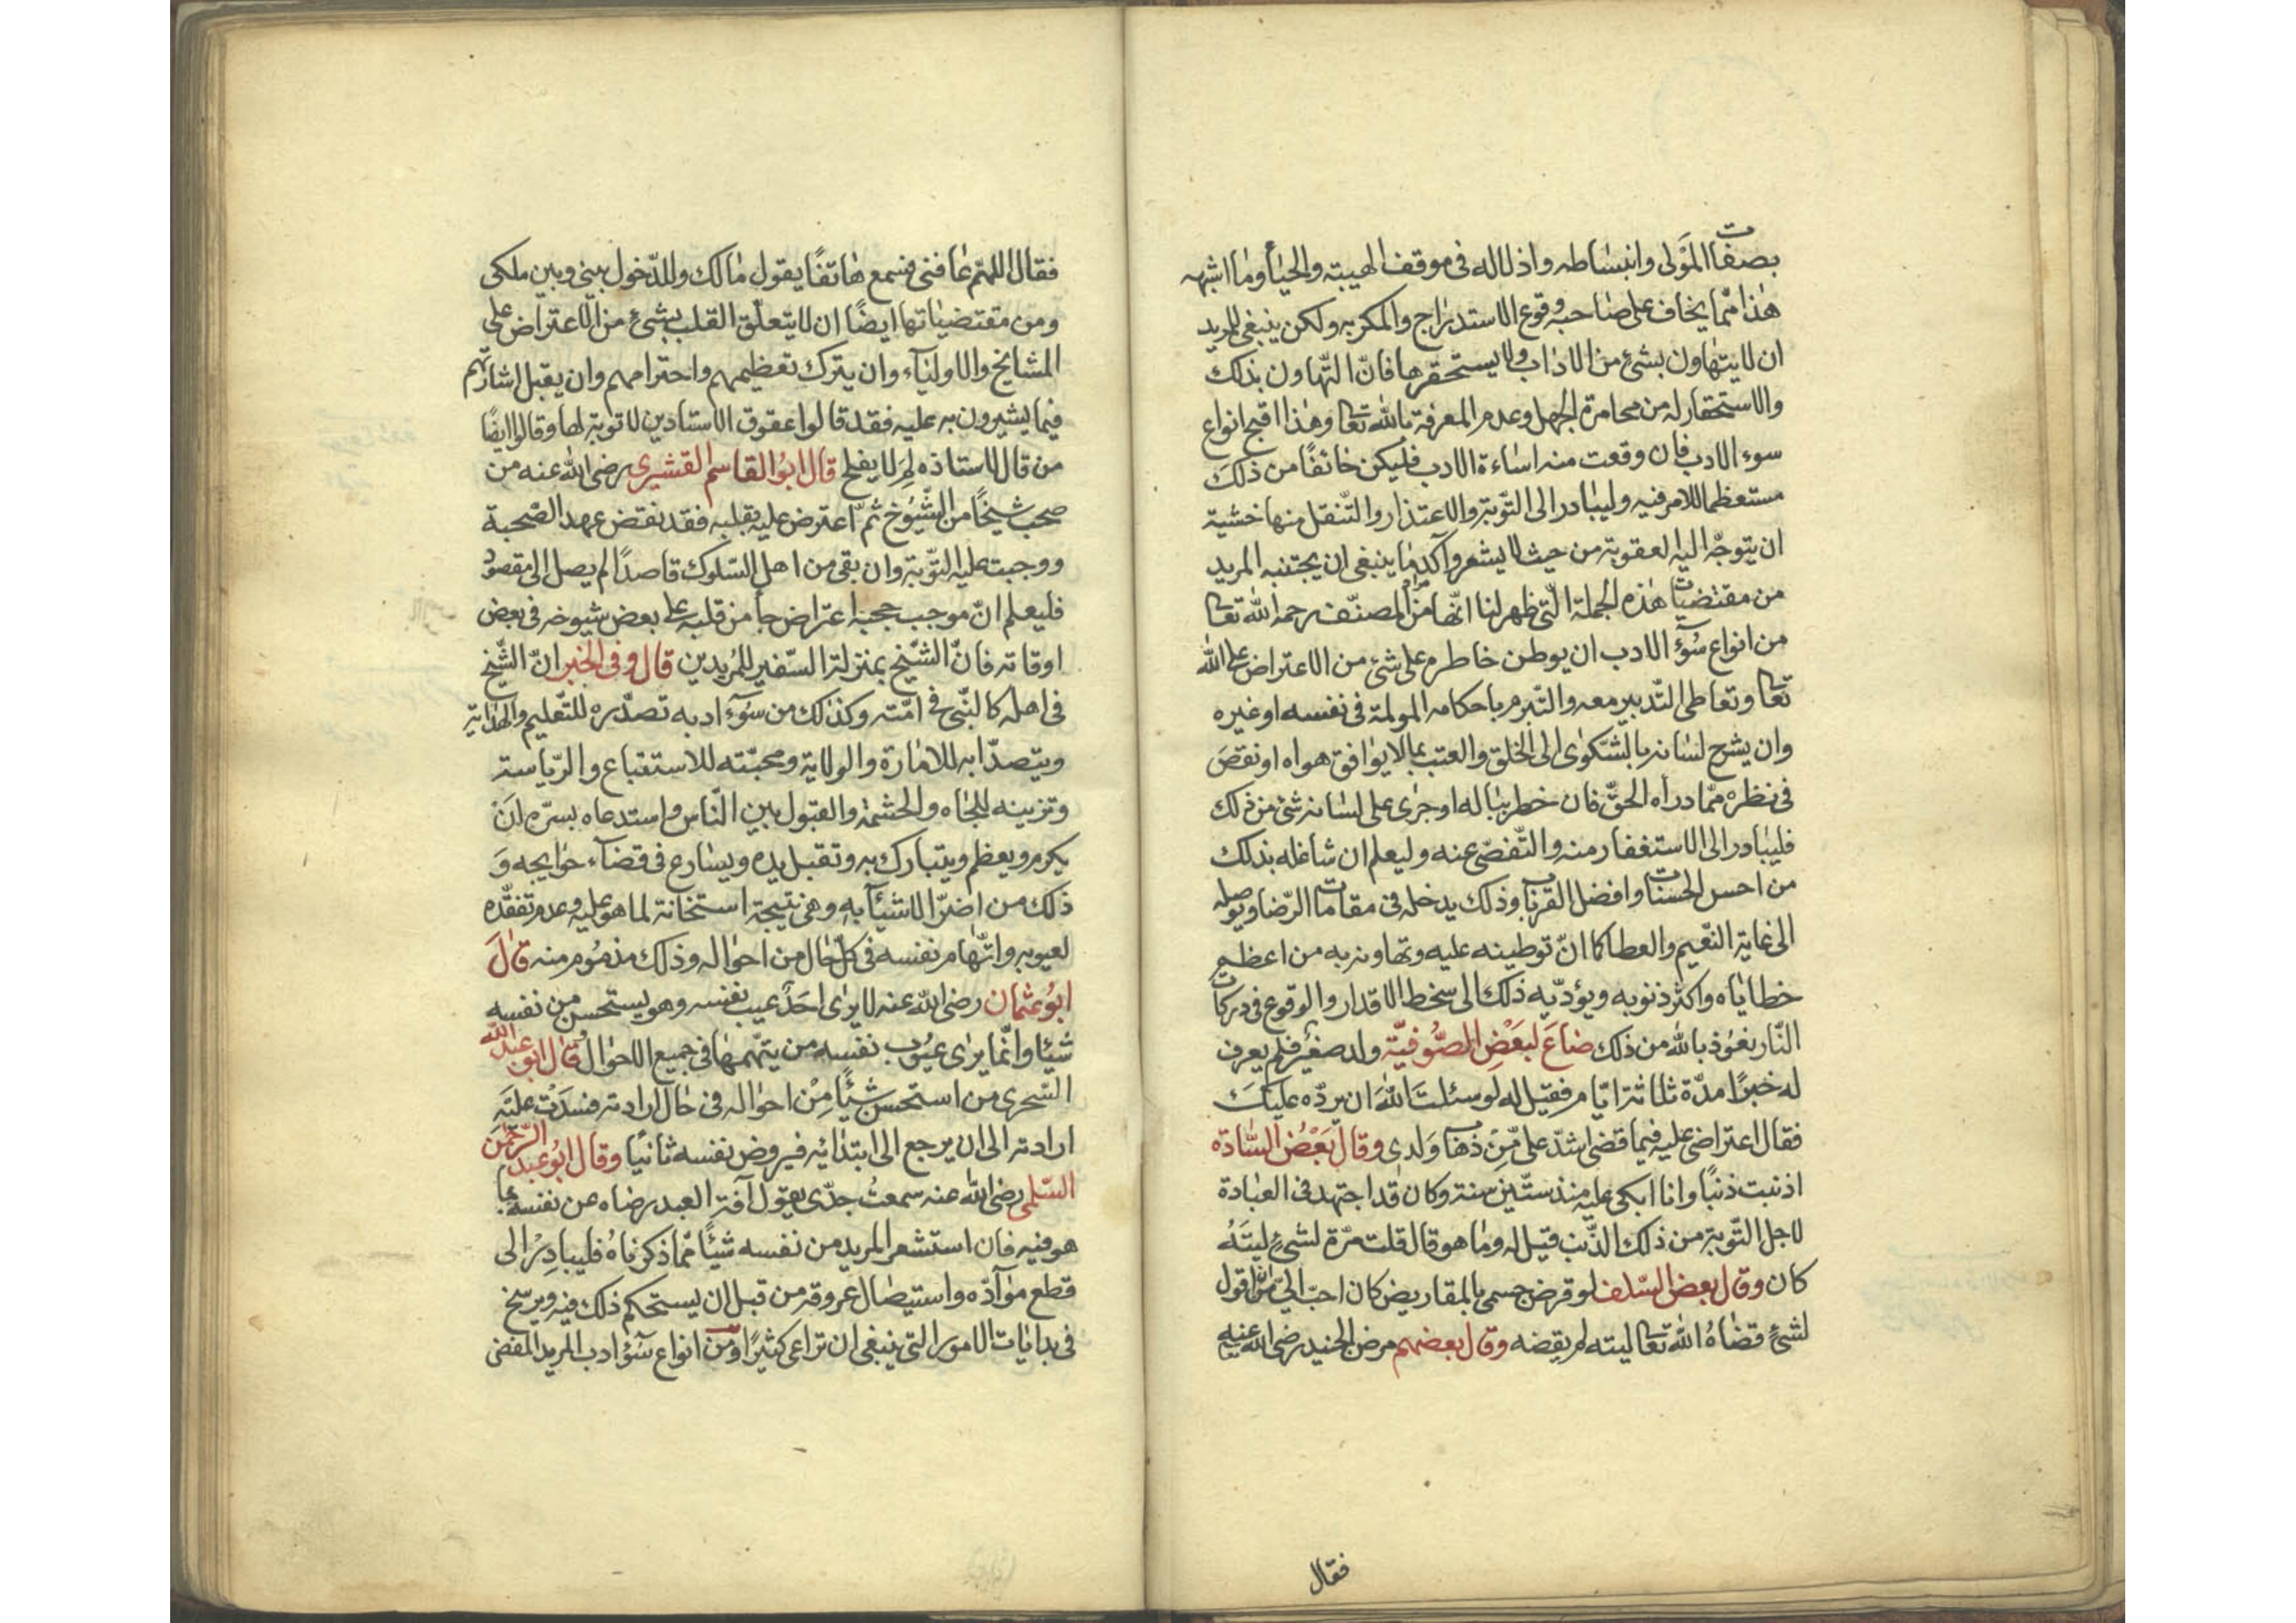 بصفات المولى وانبساطه واذلاله فى موقف الهيبة والحيأ وما اشبه
هذا ممّا يخاف على صاحبه وقوع الاستدراج والمكر به ولكن ينبغى للمريد
ان لا يتهاون بشئ من الاداب ولا يستحقرها فانّ التّهاون بذلك
والاستحقار له من محامرة الجهل وعدم المعرفة بالله تعا وهذا اقبح انواع
سوء الادب فان وقعت منه اساءة الادب فليكن خائفًا من ذلك
مستعظما للامر فيه وليبادر الى التّوبة والاعتذار والتّنقل منها خشية
ان يتوجّه اليه لعقوبة من حيث لا يشعر وآكد ما ينبغى ان يجتنبه المريد
من مقتضيات هذه الجملة الّتى ظهر لنا انّها مراد المصنّف رحمه الله تعا
من انواع سُوء الادب ان يوطن خاطره على شئ من الاعتراض على الله
تعا وتعاطى التّدبير معه والتّبرم باحكامه المولمة فى نفسه او غيره
وان يشرح لسانه بالشّكوى الى الخلق والعتب بما لا يوافق هواه او نقصَ
فى نظره ممّا دراه الحقّ فان خطر بباله او جرى على لسانه شئ من ذلك
فليبادر الى الاستغفار منه والتّفصّى عنه وليعلم ان شاغله بذلك
من احسن الحسنات وافضل القربات وذلك يدخله فى مقامات الرّضا ويوصله
الى غاية النّعيم والعطا كما انّ توطينه عليه وتهاونه به من اعظم
خطاياه واكثر ذنوبه ويؤدّيه ذلك الى سخط الاقدار والوقوع فى دركات
النّار نعوذ بالله من ذلك ضاعَ لبَعْضِ الصُّوفيّة ولد صغير فلم يعرف
له خبرًا مدّة ثلاثة ايّام فقيل له لو سئلتَ اللهَ ان يردّه عليكَ
فقال اعتراضى عليه فيما قضى اشدّ علىّ مِنْ ذهاب وَلدى وقال بَعْضُ السّادة
اذنبت ذنبًا وانا ابكى عليه منذ ستّين سنة وكان قد اجتهد فى العبادة
لاجل التّوبة من ذلك الذّنب قيل له وما هو قال قلت مرّة لشئٍ ليتَهُ
كان وقال بعض السّلف لو قرض جسمى بالمقاريض كان احبّ الىّ من ان اقول
لشئٍ قضاهُ الله تعا ليته لم يقضه وقال بعضهم مرض الجنيد رضى الله عنه
فقال
فقال اللهمّ عافنى فسمع هاتفًا يقول مالك وللدّخول بينى وبين ملكى
ومن مقتضياتها ايضًا ان لا يتعلّق القلب بشئ من الاعتراض على
المشايخ والاولياء وان يترك تعظيمهم واحترامهم وان يقبل اشاراتهم
فيما يشيرون به عليه فقد قالوا عقوق الاستادين لا توبة لها وقالوا ايضًا
من قال لاستاذه لِمَ لا يفلح قال ابوُ القاسم القشيرى رضى الله عنه من
صحب شيخًا من الشّيُوخ ثمّ اعترض عليه بقلبه فقد نقض عهد الصّحبة
ووجبت عليه التّوبة وان بقى من اهل السّلوك قاصدًا لم يصل الى مقصوده
فليعلم انّ موجب حجبه اعتراض جأ من قلبه على بعض شيوخه فى بعض
اوقاته فانّ الشّيخ بمنزلة السّفير للمُريدين قال وفى الخبر انّ الشّيخ
فى اهله كالنّبىّ فى امّته وكذلك من سُوء ادبه تصدّره للتّعليم والهداية
ويتصدّا به للامارة والولاية ومحبّته للاستتباع والرّياسة
وتزينه للجاه والحشمة والقبول بين النّاس واستدعاه بسرّه لَنْ
يكرم ويعظم ويتبارك به وتقبل يده ويسارع فى قضاء حوايجه وَ
ذلك من اضرّ الاشيأ به وهى نتيجة استخانة لما هو عليه وعدم تفقّده
لعيوبه واتّهام نفسه فى كلّ حال من احواله وذلك مذمُوم منه قالَ
ابوُ عثمان رضى الله عنه لا يرى احَدٌ عيب نفسه وهو يستحسن من نفسه
شيئا وانّما يرى عيُوب نفسه من يتّهمها فى جميع الاحوال قال ابو عبد الله
السّجرى من استحسن شيئًا مِنْ احواله فى حال ارادته فسدَتْ عليَه
ارادته الى ان يرجع الى ابتدائه فيروض نفسه ثانيًا وقال ابوُ عبد الرّحمنَ
السّلمى رضى الله عنه سمعتُ جدّى يقول آفة العبد رضاه عن نفسه بما
هو فيه فان استشعر المريد من نفسه شيئًا ممّا ذكرناهُ فليبادِرْ الى
قطع موآدّه واستيصال عروقه من قبل ان يستحكم ذلك فيه ويرسخ
فى بدايات الامور التى ينبغى ان تراعى كثيرًا ومن انواع سُوُء ادب المريد المفضى